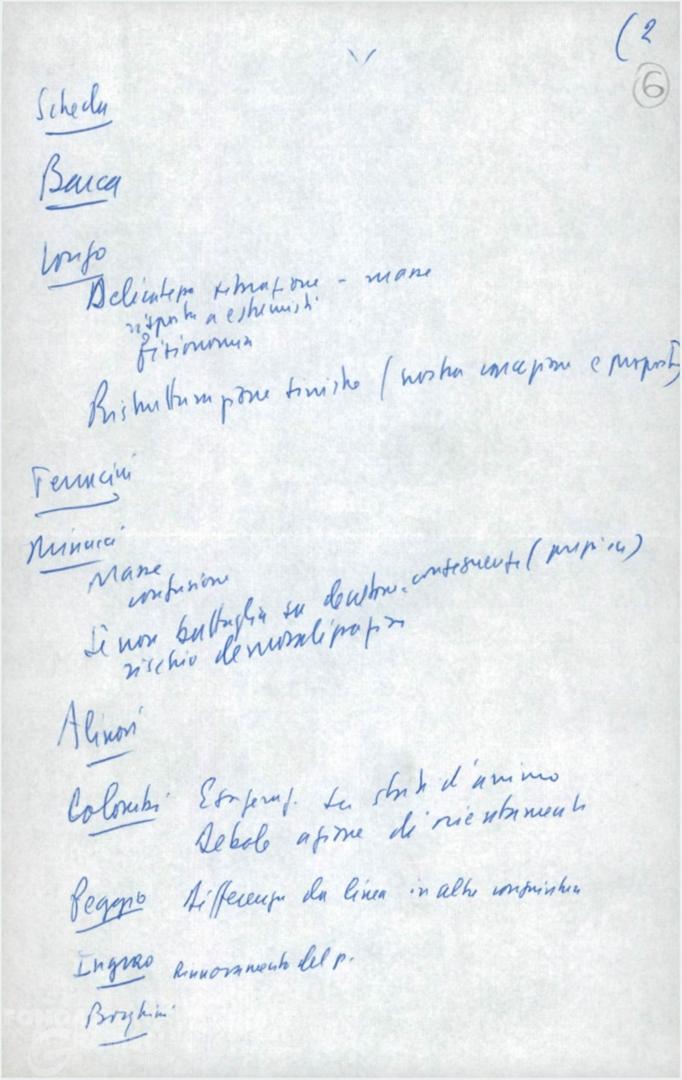 (2
6
Scheda
Barca
Longo
Delicatezza situazione - masse
risposta a estremisti
fisionomia
Ristrutturazione sinistra (nostra concezione e proposta)
Terracini
Minucci
Masse
confusione
Se non battaglia su
rischio demoralizzazione
Alinovi
Colombi Esageraz. su stati d'animo
Debole azione di orientamento
Peggio Differenza da linea in altre
Ingrao Rinnovamento del p.
Borghini